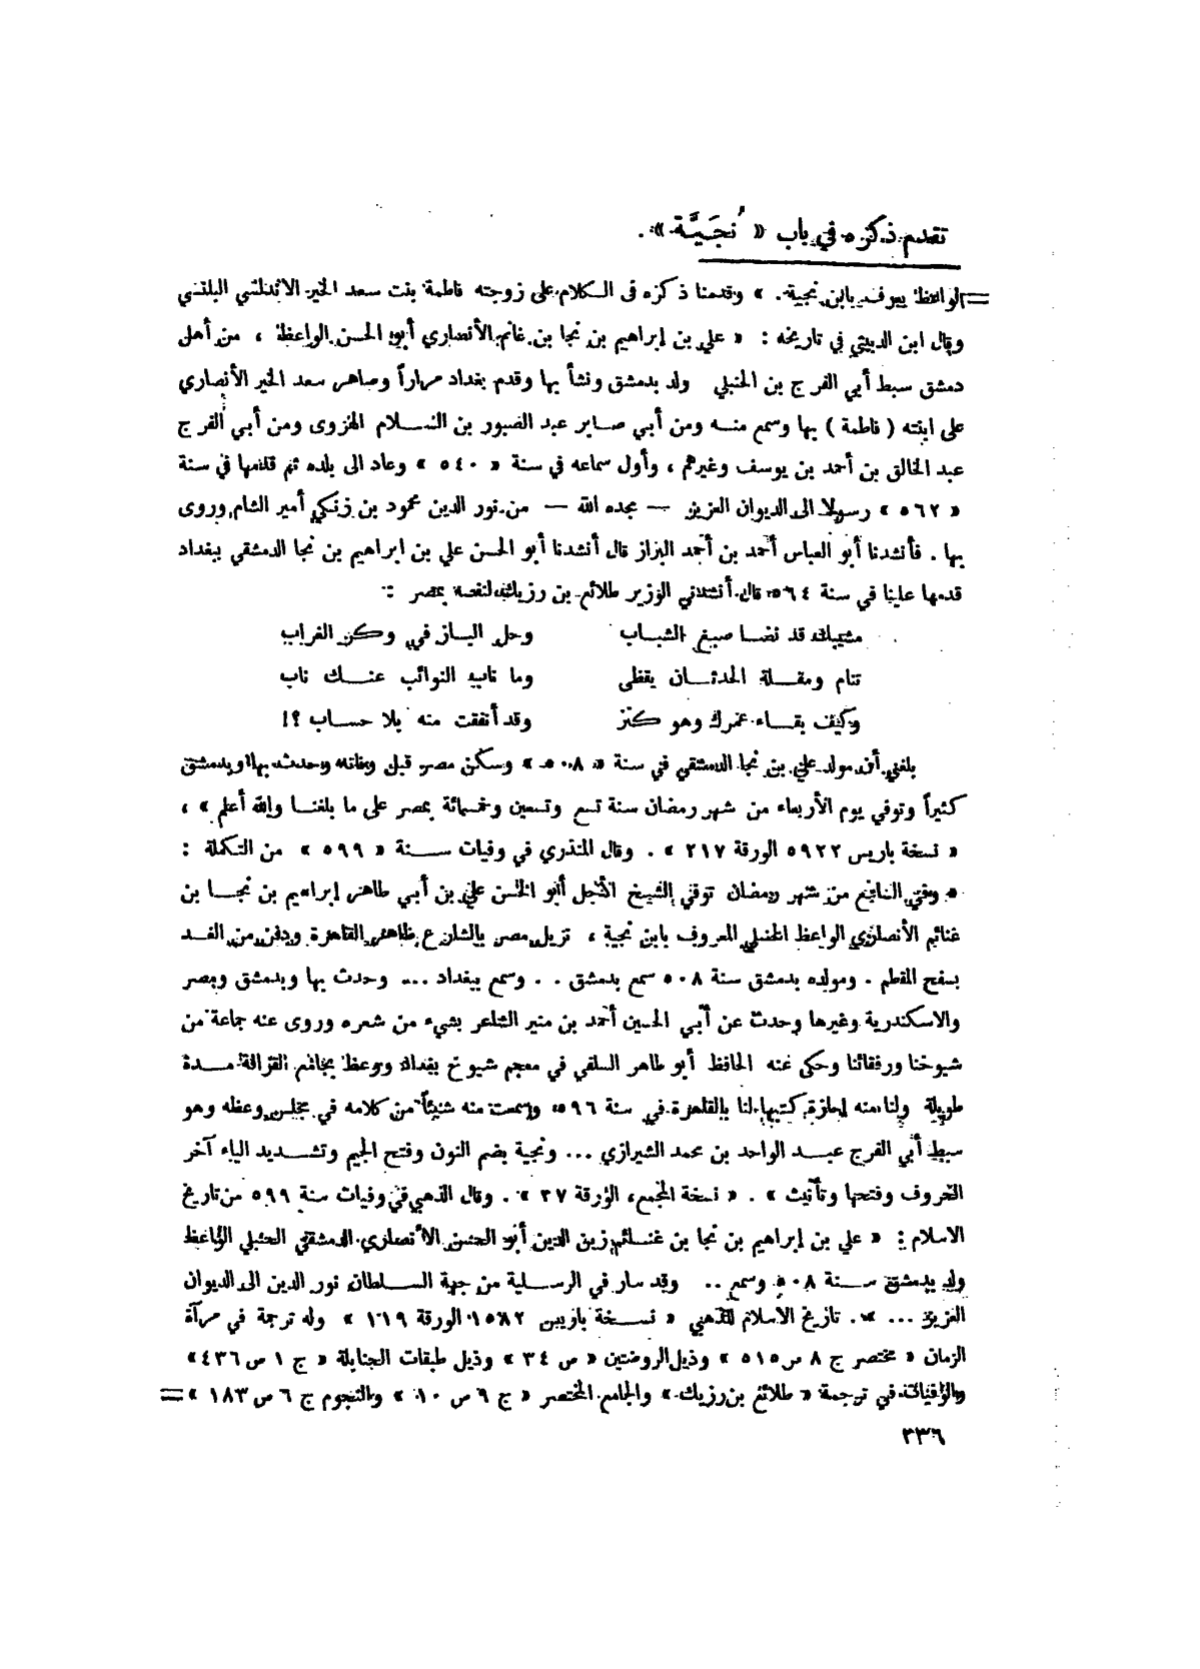 تقدم ذكره في باب « نُجَيَّة » .
= الواعظ يعرف بابن نجية . » وقدمنا ذكره فى الكلام على زوجته فاطمة بنت سعد الخير الاندلسي البلنسي
وقال ابن الدبيثي في تاريخه : « علي بن إبراهيم بن نجا بن غانم الأنصاري أبو الحسن الواعظ ، من أهل
دمشق سبط أبي الفرج بن الحنبلي ولد بدمشق ونشأ بها وقدم بغداد مراراً وصاهر سعد الخير الأنصاري
على ابنته ( فاطمة ) بها وسمع منه ومن أبي صابر عبد الصبور بن السلام الهروى ومن أبي الفرج
عبد الخالق بن أحمد بن يوسف وغيرهم ، وأول سماعه في سنة « ٥٤٠ » وعاد الى بلده ثم قدمها في سنة
« ٥٦٢ » رسولا الى الديوان العزيز — مجده الله — من نور الدين محمود بن زنكي أمير الشام وروى
بها . فأنشدنا أبو العباس أحمد بن أحمد البزاز قال أنشدنا أبو الحسن علي بن ابراهيم بن نجا الدمشقي ببغداد
قدمها علينا في سنة ٥٦٤ قال أنشدني الوزير طلائع بن رزيك لنفسه بمصر :
مشيبك قد نضا صبغ الشباب وحل الباز في وكر الغراب
تنام ومقلة الحدثان يقظى وما ناب النوائب عنك ناب
وكيف بقاء عمرك وهو كنز وقد أنفقت منه بلا حساب ؟!
بلغني أن مولد علي بن نجا الدمشقي في سنة « ٥٠٨ » وسكن مصر قبل وفاته وحدث بها وبدمشق
كثيراً وتوفي يوم الأربعاء من شهر رمضان سنة تسع وتسعين وخمسائة بمصر على ما بلغنا والله أعلم » ،
« نسخة باريس ٥٩٢٢ الورقة ٢١٧ » . وقال المنذري في وفيات سنة « ٥٩٩ » من التكملة :
« وفي السابع من شهر رمضان توفي الشيخ الأجل أبو الحسن علي بن أبي طاهر إبراهيم بن نجا بن
غنائم الأنصاري الواعظ الحنبلي المعروف بابن نجية ، نزيل مصر بالشارع ظاهر القاهرة ودفن من الغد
بسفح المقطم . ومولده بدمشق سنة ٥٠٨ سمع بدمشق . . وسمع ببغداد ... وحدث بها وبدمشق وبمصر
والاسكندرية وغيرها وحدث عن أبي الحسين أحمد بن منير الشاعر بشيء من شعره وروى عنه جماعة من
شيوخنا ورفقائنا وحكى عنه الحافظ أبو طاهر السلفي في معجم شيوخ بغداد ووعظ بجامع القرافة مدة
طويلة ولنا منه إجازة كتبها لنا بالقاهرة في سنة ٥٩٦ وسمعت منه شيئاً من كلامه في مجلس وعظه وهو
سبط أبي الفرج عبد الواحد بن محمد الشيرازي ... ونجية بضم النون وفتح الجيم وتشديد الياء آخر
الحروف وفتحها وتأنيث » . « نسخة المجمع ، الورقة ٣٧ » . وقال الذهبي في وفيات سنة ٥٩٩ من تاريخ
الاسلام : « علي بن إبراهيم بن نجا بن غنائم زين الدين أبو الحسن الأنصاري الدمشقي الحنبلي الواعظ
ولد بدمشق سنة ٥٠٨ وسمع .. وقد سار في الرسلية من جهة السلطان نور الدين الى الديوان
العزيز ... » . تاريخ الاسلام للذهبي « نسخة باريس ١٥٨٢ الورقة ١١٩ » وله ترجمة في مرآة
الزمان « مختصر ج ٨ ص ٥١٥ » وذيل الروضتين « ص ٣٤ » وذيل طبقات الحنابلة « ج ١ ص ٤٣٦ »
والوفيات في ترجمة « طلائع بن رزيك » والجامع المختصر « ج ٩ ص ١٠ » والنجوم ج ٦ ص ١٨٣ » =
٣٣٦